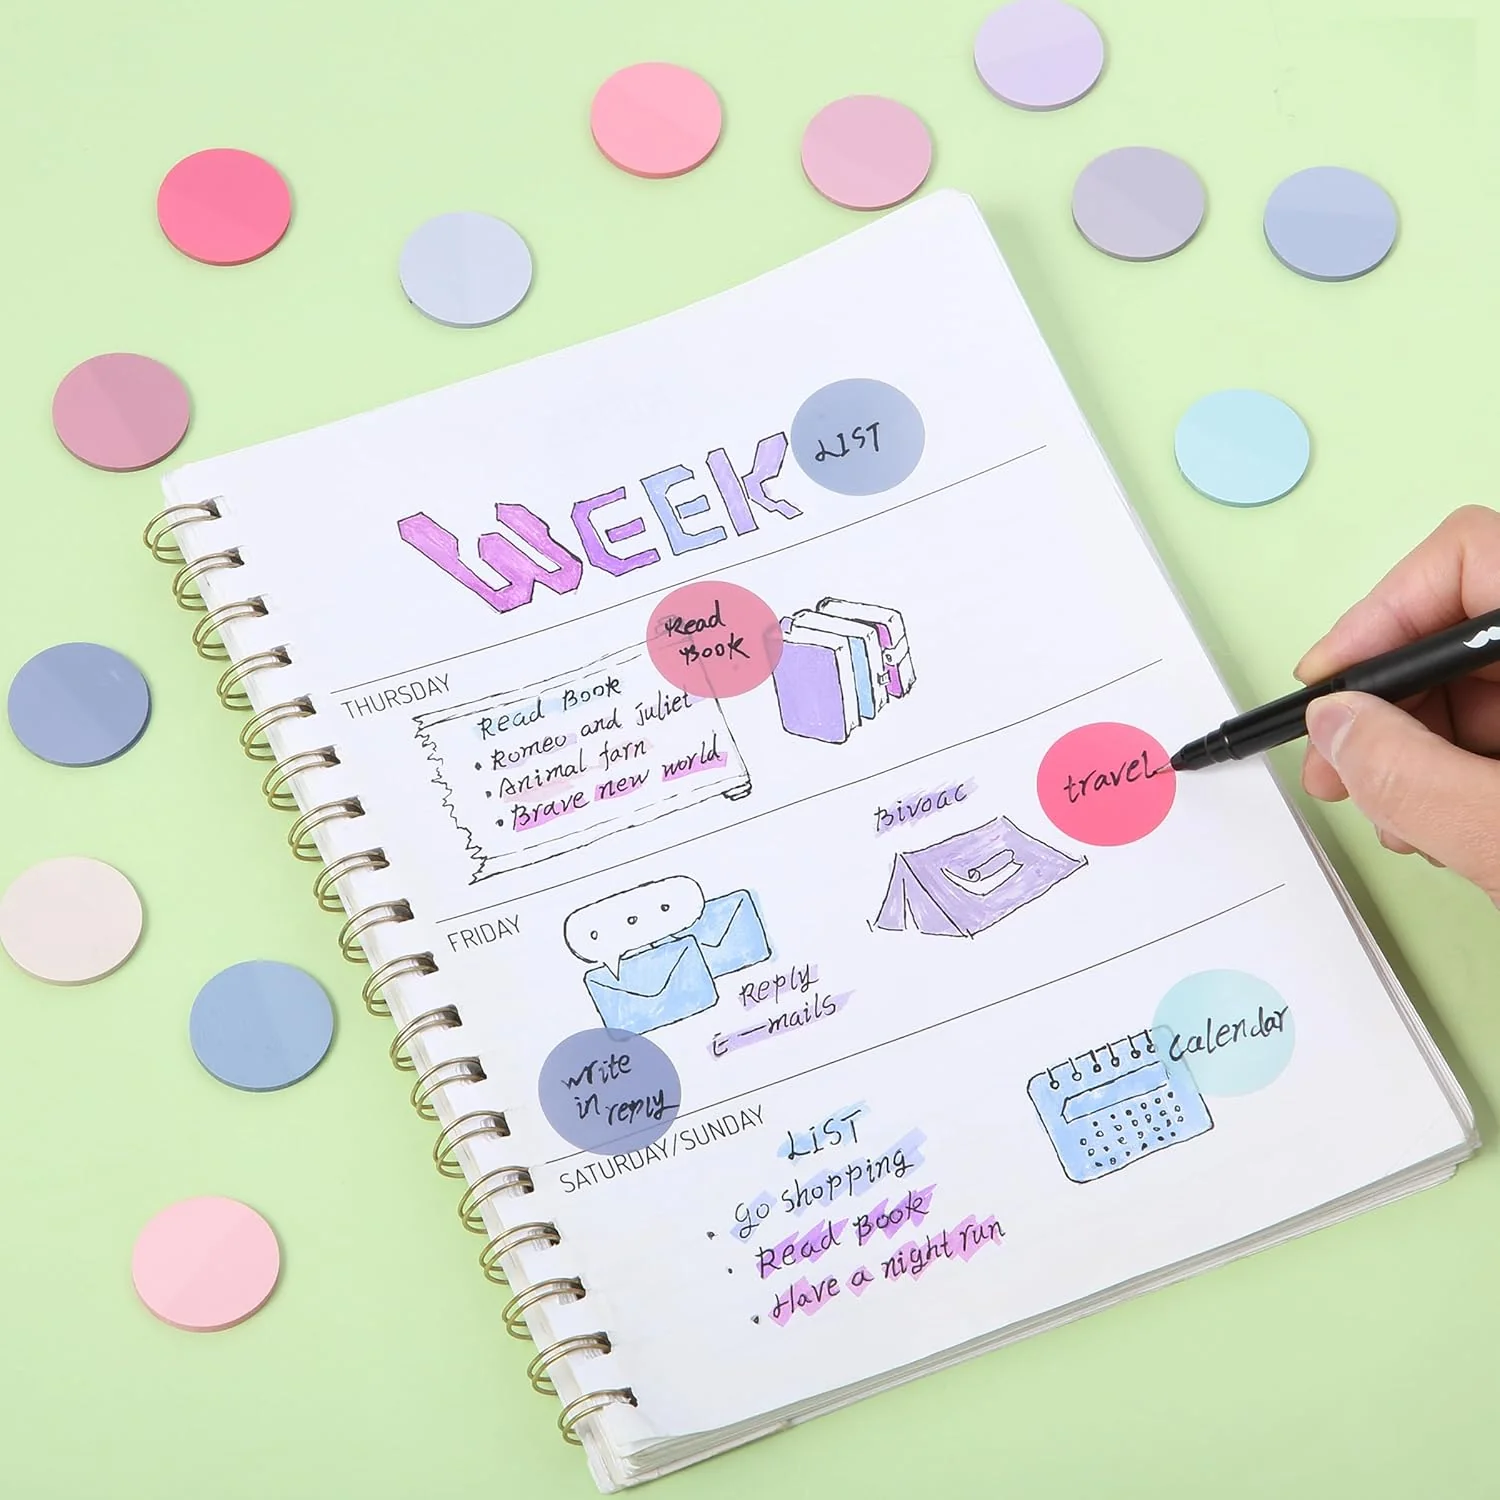 WEEK
LIST
THURSDAY
Read Book
• Romeo and juliet
• Animal farn
• Brave new world
Read
Book
FRIDAY
Reply
E—mails
write
in reply
Bivoac
travel
SATURDAY/SUNDAY
LIST
• go shopping
• Read Book
• Have a night run
calendar